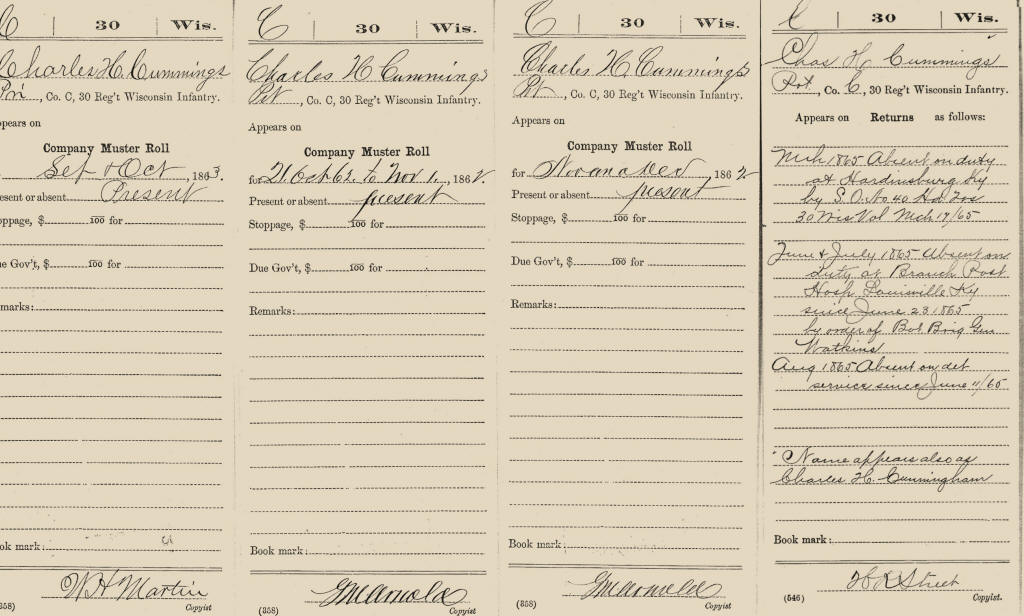 C | 30 | Wis.
Charles H. Cummings
Pri, Co. C, 30 Reg't Wisconsin Infantry.
ppears on
Company Muster Roll
Sep & Oct, 1863.
esent or absent Present
oppage, $ 100 for
ue Gov't, $ 100 for
emarks:
ook mark:
W H Martin
(358) Copyist
C | 30 | Wis.
Charles H Cummings
Pvt, Co. C, 30 Reg't Wisconsin Infantry.
Appears on
Company Muster Roll
for 21 Oct 62. to Nov 1., 1862.
Present or absent present
Stoppage, $ 100 for
Due Gov't, $ 100 for
Remarks:
Book mark:
GM Arnold
(358) Copyist
C | 30 | Wis.
Charles H. Cummings
Pvt, Co. C, 30 Reg't Wisconsin Infantry.
Appears on
Company Muster Roll
for Nov and Dec, 1862.
Present or absent present
Stoppage, $ 100 for
Due Gov't, $ 100 for
Remarks:
Book mark:
GM Arnold
(358) Copyist
C | 30 | Wis.
Chas H Cummings
Pvt., Co. C, 30 Reg't Wisconsin Infantry.
Appears on Returns as follows:
Mch 1865 Absent on duty
at Hardinsburg Ky
by S.O. No 40 Hd Qrs
30 Wis Vol Mch 17/65
June & July 1865 Absent on
duty at Branch Post
Hosp Louisville Ky
since June 23 1865
by order of Bvt Brig Gen
Watkins
Aug 1865 Absent on det
service since June 11/65
Name appears also as
Charles H. Cunningham
Book mark:
H R Street
(546) Copyist.